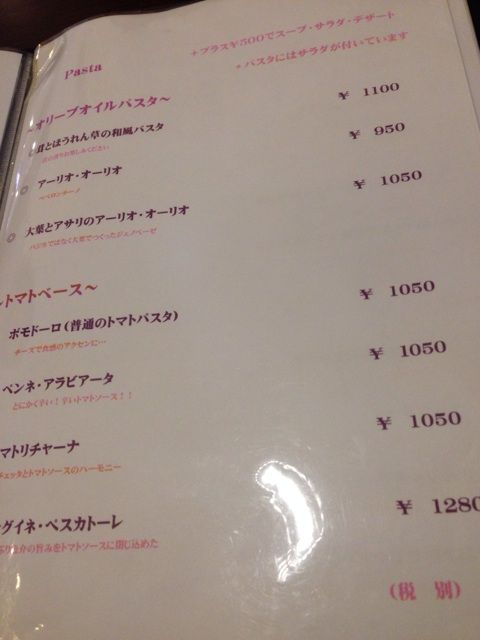 Pasta
+プラス¥500でスープ・サラダ・デザート
*パスタにはサラダが付いています
~オリーブオイルパスタ~
◎茸とほうれん草の和風パスタ ¥ 1100
お楽しみください
◎ アーリオ・オーリオ ¥ 950
ペペロンチーノ
◎ 大葉とアサリのアーリオ・オーリオ ¥ 1050
バジルではなく大葉でつくったジェノベーゼ
トマトベース~
ポモドーロ(普通のトマトパスタ) ¥ 1050
チーズで食感のアクセントに…
ペンネ・アラビアータ ¥ 1050
とにかく辛い!辛いトマトソース!!
マトリチャーナ ¥ 1050
チェッタとトマトソースのハーモニー
グイネ・ペスカトーレ ¥ 1280
介の旨みをトマトソースに閉じ込めた
(税 別)